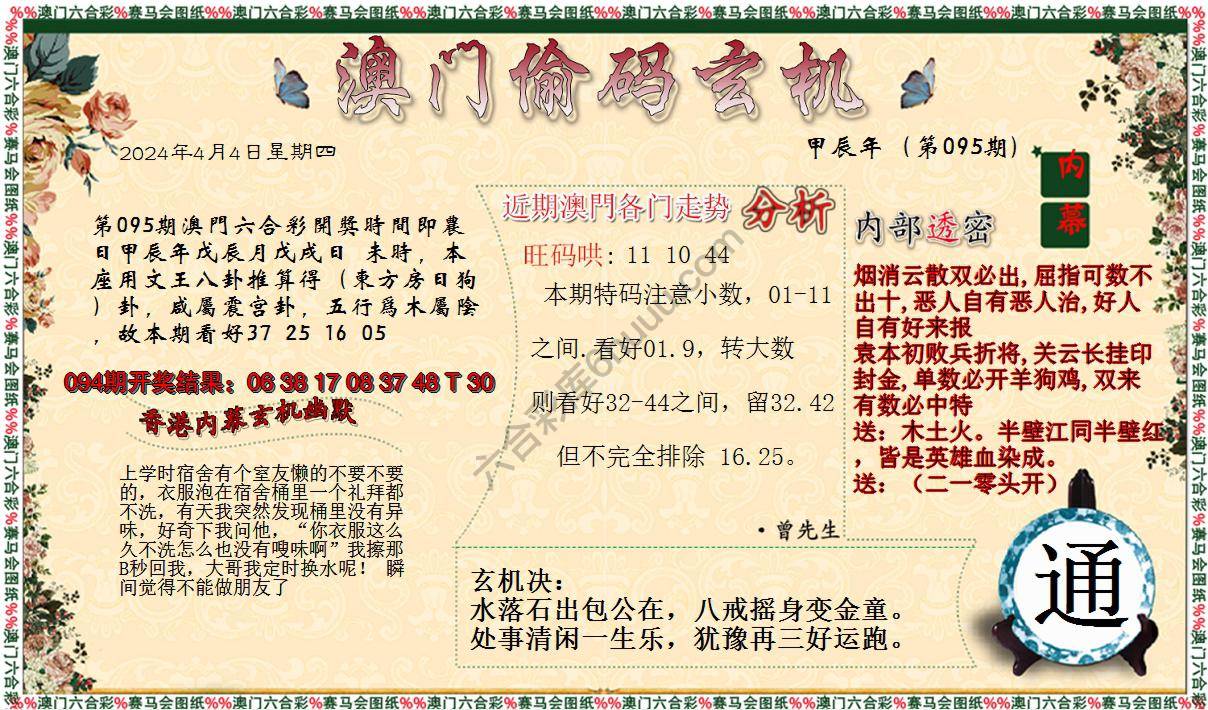 %%澳门六合彩%赛马会图纸%%澳门六合彩%赛马会图纸%%澳门六合彩%赛马会图纸%%澳门六合彩%赛马会图纸%%澳门六合彩%赛马会图纸%%澳门六合彩%赛马会图纸%%
澳门偷码玄机
2024年4月4日星期四
甲辰年（第095期）
内幕
第095期澳門六合彩開獎時間即農
日甲辰年戊辰月戊戌日 未時，本
座用文王八卦推算得（東方房日狗
）卦，咸屬震宫卦，五行爲木屬陰
，故本期看好37 25 16 05
094期开奖结果：06 38 17 08 37 48 T 30
香港内幕玄机幽默
上学时宿舍有个室友懒的不要不要
的，衣服泡在宿舍桶里一个礼拜都
不洗，有天我突然发现桶里没有异
味，好奇下我问他，“你衣服这么
久不洗怎么也没有嗖味啊”我擦那
B秒回我，大哥我定时换水呢！ 瞬
间觉得不能做朋友了
近期澳門各门走势 分析
旺码哄: 11 10 44
本期特码注意小数，01-11
之间.看好01.9，转大数
则看好32-44之间，留32.42
但不完全排除 16.25。
·曾先生
内部透密
烟消云散双必出,屈指可数不
出十,恶人自有恶人治,好人
自有好来报
袁本初败兵折将,关云长挂印
封金,单数必开羊狗鸡,双来
有数必中特
送：木土火。半壁江同半壁红
，皆是英雄血染成。
送：（二一零头开）
玄机决：
水落石出包公在，八戒摇身变金童。
处事清闲一生乐，犹豫再三好运跑。
通
%%澳门六合彩%赛马会图纸%%澳门六合彩%赛马会图纸%%澳门六合彩%赛马会图纸%%澳门六合彩%赛马会图纸%%澳门六合彩%赛马会图纸%%澳门六合彩%赛马会图纸%%